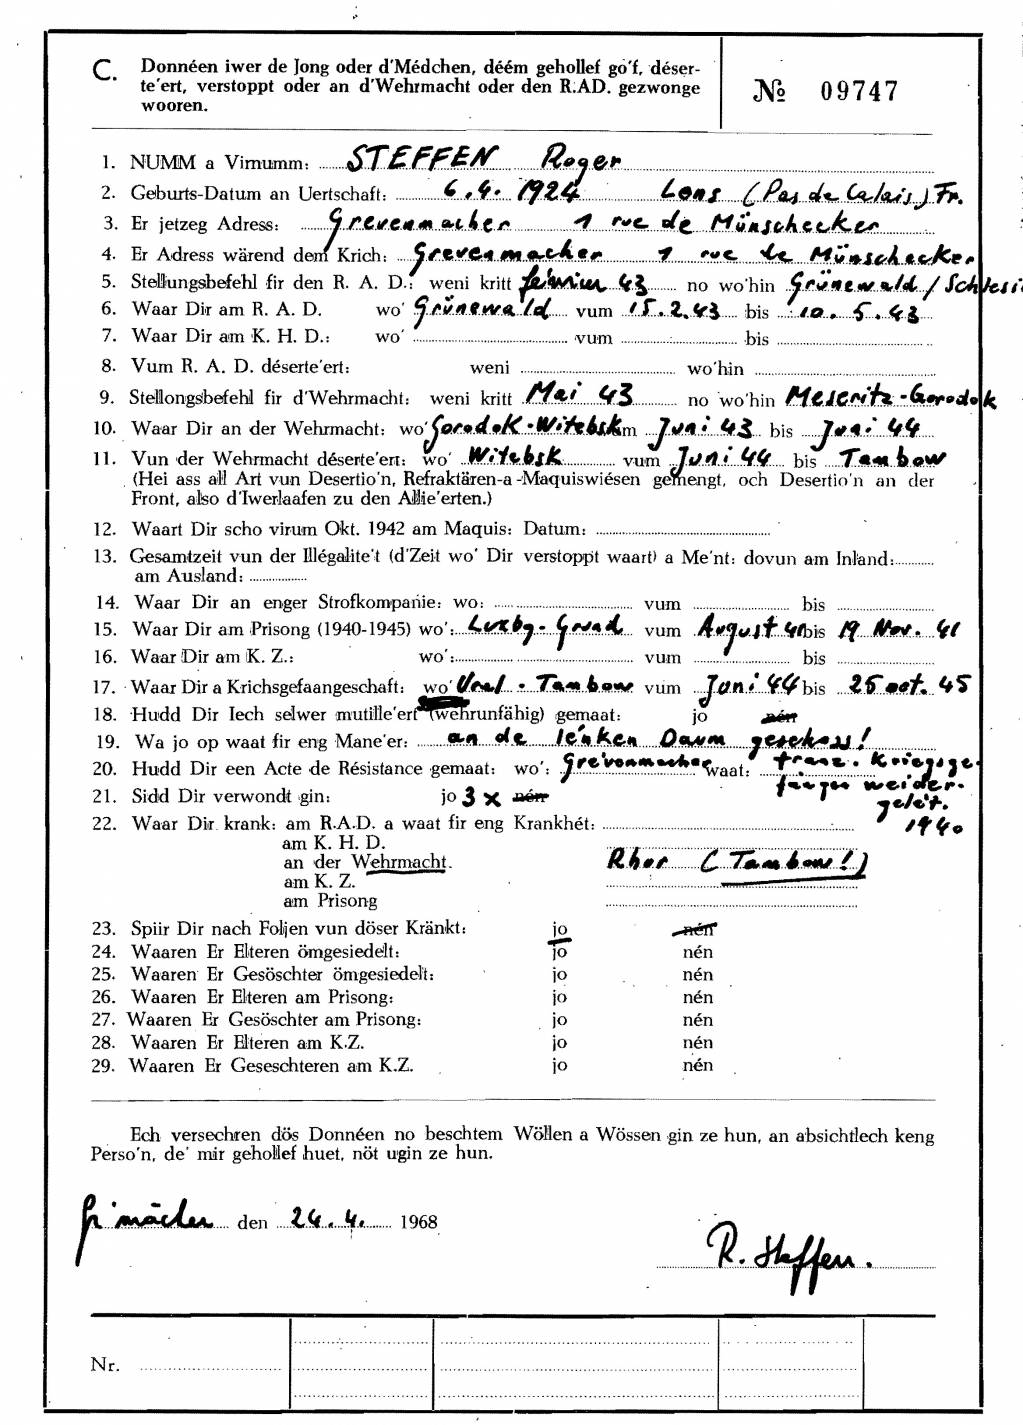 C. Donnéen iwer de Jong oder d'Médchen, déém gehollef go'f, déser-
te'ert, verstoppt oder an d'Wehrmacht oder den R.AD. gezwonge
wooren.
№ 09747
1. NUMM a Virnumm: STEFFEN Roger
2. Geburts-Datum an Uertschaft: 6.4.1924 Lens (Pas de Calais) Fr.
3. Er jetzeg Adress: Grevenmacher 1 rue de Münschecker
4. Er Adress wärend dem Krich: Grevenmacher 1 rue de Münschecker
5. Stellungsbefehl fir den R. A. D.: weni kritt février 43 no wo'hin Grünewald / Schlesie
6. Waar Dir am R. A. D. wo' Grünewald vum 15.2.43 bis 10.5.43
7. Waar Dir am K. H. D.: wo' vum bis
8. Vum R. A. D. déserte'ert: weni wo'hin
9. Stellongsbefehl fir d'Wehrmacht: weni kritt Mai 43 no wo'hin Meseritz-Gorodok
10. Waar Dir an der Wehrmacht: wo' Gorodok-Witebsk vum Juni 43 bis Juni 44
11. Vun der Wehrmacht déserte'ert: wo' Witebsk vum Juni 44 bis Tambow
(Hei ass all Art vun Desertio'n, Refraktären-a-Maquiswiésen gemengt, och Desertio'n an der
Front, also d'Iwerlaafen zu den Allie'erten.)
12. Waart Dir scho virum Okt. 1942 am Maquis: Datum:
13. Gesamtzeit vun der Illégalite't (d'Zeit wo' Dir verstoppt waart) a Me'nt: dovun am Inland:
am Ausland:
14. Waar Dir an enger Strofkompanie: wo: vum bis
15. Waar Dir am Prisong (1940-1945) wo': Luxbg-Grund vum August 41 bis 19 Nov. 41
16. Waar Dir am K. Z.: wo': vum bis
17. Waar Dir a Krichsgefaangeschaft: wo' Ural - Tambow vum Juni 44 bis 25 oct. 45
18. Hudd Dir Iech selwer mutille'ert (wehrunfähig) gemaat: jo nén
19. Wa jo op waat fir eng Mane'er: an de lénken Daum geschoss!
20. Hudd Dir een Acte de Résistance gemaat: wo': Grévenmacher waat: franz. Kriegsge-
fangen weider-
21. Sidd Dir verwondt gin: jo 3 x nén
geléт.
22. Waar Dir krank: am R.A.D. a waat fir eng Krankhét: 1940
am K. H. D.
an der Wehrmacht. Rhor (Tambow!)
am K. Z.
am Prisong
23. Spiir Dir nach Foljen vun döser Kränkt: jo nén
24. Waaren Er Elteren ömgesiedelt: jo nén
25. Waaren Er Gesöschter ömgesiedelt: jo nén
26. Waaren Er Elteren am Prisong: jo nén
27. Waaren Er Gesöschter am Prisong: jo nén
28. Waaren Er Elteren am K.Z. jo nén
29. Waaren Er Geseschteren am K.Z. jo nén
Ech versechren dös Donnéen no beschtem Wöllen a Wössen gin ze hun, an absichtlech keng
Perso'n, de' mir gehollef huet, nöt ugin ze hun.
Gr'mächer den 24.4. 1968
R. Steffen.
Nr.